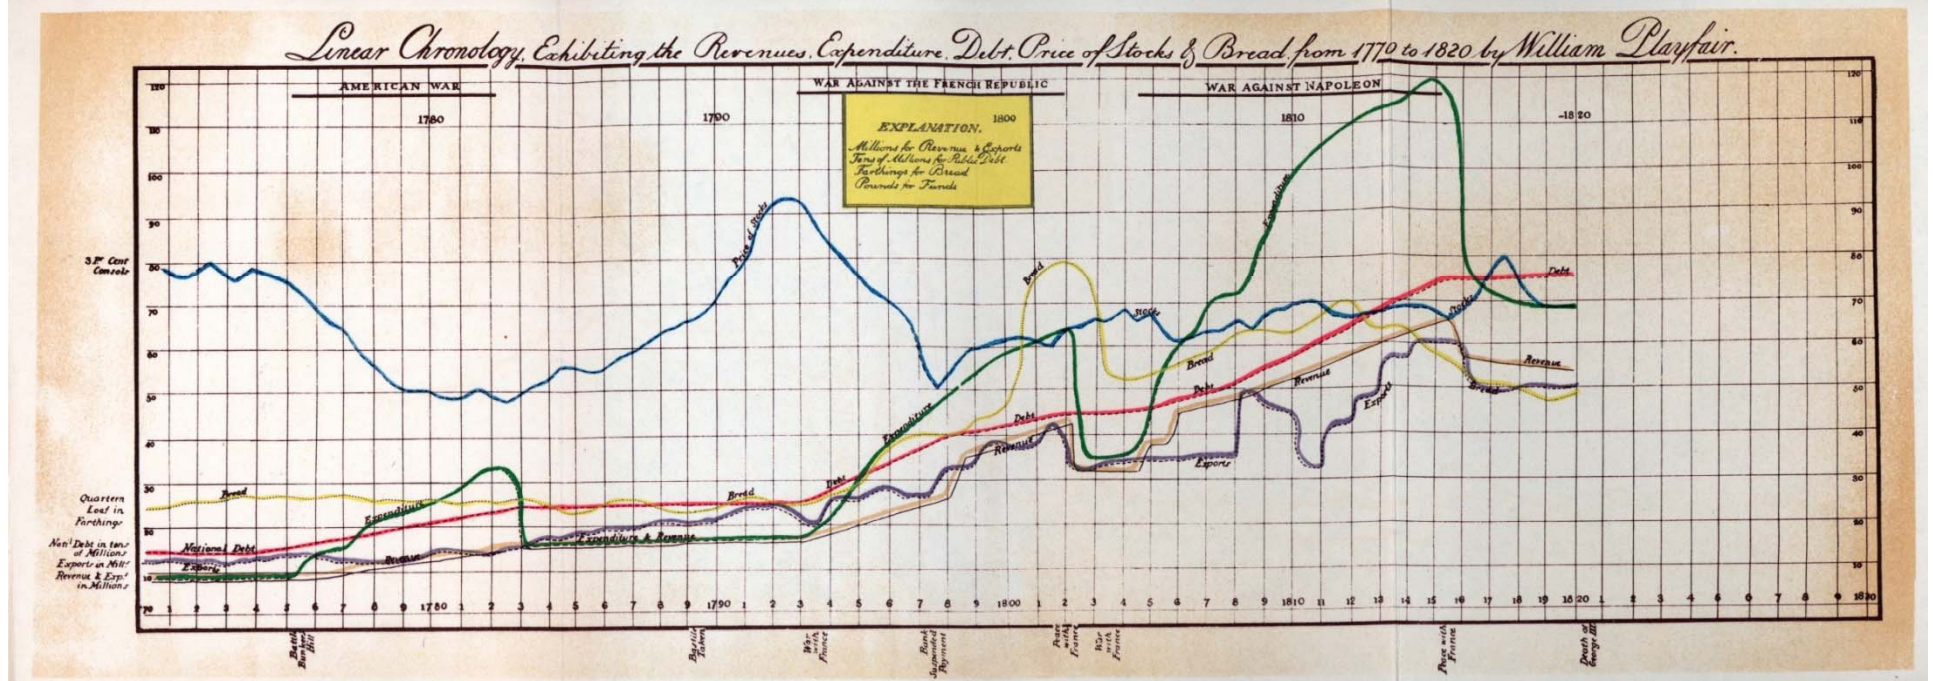 Linear Chronology, Exhibiting the Revenues, Expenditure, Debt, Price of Stocks & Bread, from 1770 to 1820 by William Playfair.
AMERICAN WAR
WAR AGAINST THE FRENCH REPUBLIC
WAR AGAINST NAPOLEON
1780
1790
1800
1810
1820
EXPLANATION.
Millions for Revenue & Exports
Tens of Millions for Public Debt
Farthings for Bread
Pounds for Funds
120
110
100
90
80
70
60
50
40
30
20
10
3 Pr Cent
Consols
Quartern
Loaf in
Farthings
Natl Debt in tens
of Millions
Exports in Mills
Revenue & Expe
in Millions
Price of Stocks
Bread
Expenditure
National Debt
Exports
Revenue
Expenditure & Revenue
Bread
Debt
Expenditure
Debt
Revenue
Bread
Stock
Bread
Debt
Exports
Revenue
Expenditure
Exports
Stocks
Debt
Revenue
Bread
120
110
100
90
80
70
60
50
40
30
20
10
70 1 2 3 4 5 6 7 8 9 1780 1 2 3 4 5 6 7 8 9 1790 1 2 3 4 5 6 7 8 9 1800 1 2 3 4 5 6 7 8 9 1810 11 12 13 14 15 16 17 18 19 1820 1 2 3 4 5 6 7 8 9 1830
Battle
Bunkers
Hill
Bastile
Taken
War
with
France
Bank
Suspended
Payment
Peace
with
France
War
with
France
Peace with
France
Death of
George III